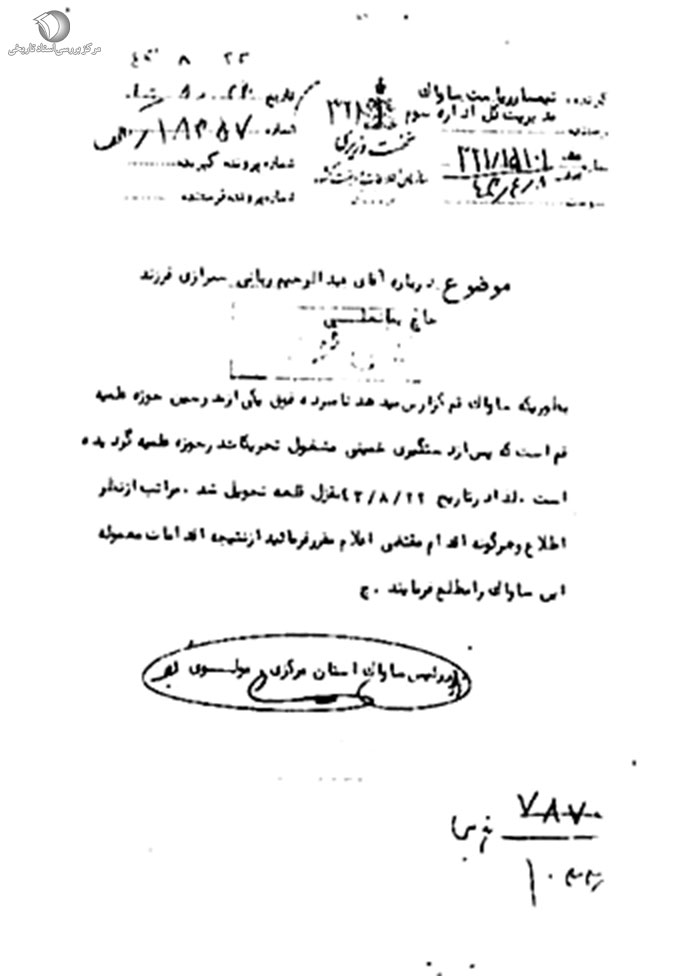 مرکز بررسی اسناد تاریخی
۲۳ ۸
گیرنده تیمسار ریاست ساواک
مدیریت کل اداره سوم
نخست وزیری
سازمان اطلاعات و امنیت کشور
تاریخ
شماره ۱۸۳۵۷/
شماره پرونده گیرنده
شماره پرونده فرستنده
۳۲۱/۱۵۱۰۱
پیوست
موضوع درباره آقای عبدالرحیم ربانی شیرازی فرزند
حاج
بطوریکه ساواک قم گزارش میدهد نامبرده فوق یکی از مدرسین حوزه علمیه
قم است که پس از دستگیری خمینی مشغول تحریکات در حوزه علمیه گردیده
است. لذا در تاریخ ۴۲/۸/۲۲ بقزل قلعه تحویل شد. مراتب از نظر
اطلاع و هرگونه اقدام مقتضی اعلام مقرر فرمائید از نتیجه اقدامات معموله
این ساواک را مطلع فرمایند. ج
رئیس ساواک استان مرکزی. مولوی
۷۸۷۰